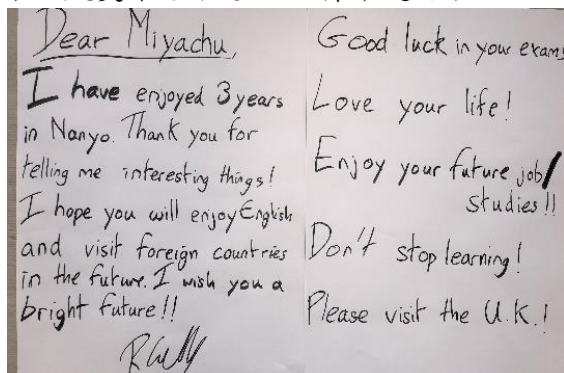 Dear Miyachu,
I have enjoyed 3 years
in Nanyo. Thank you for
telling me interesting things!
I hope you will enjoy English
and visit foreign countries
in the future. I wish you a
bright future!!
Good luck in your exams
Love your life!
Enjoy your future job/
studies!!
Don't stop learning!
Please visit the U.K.!